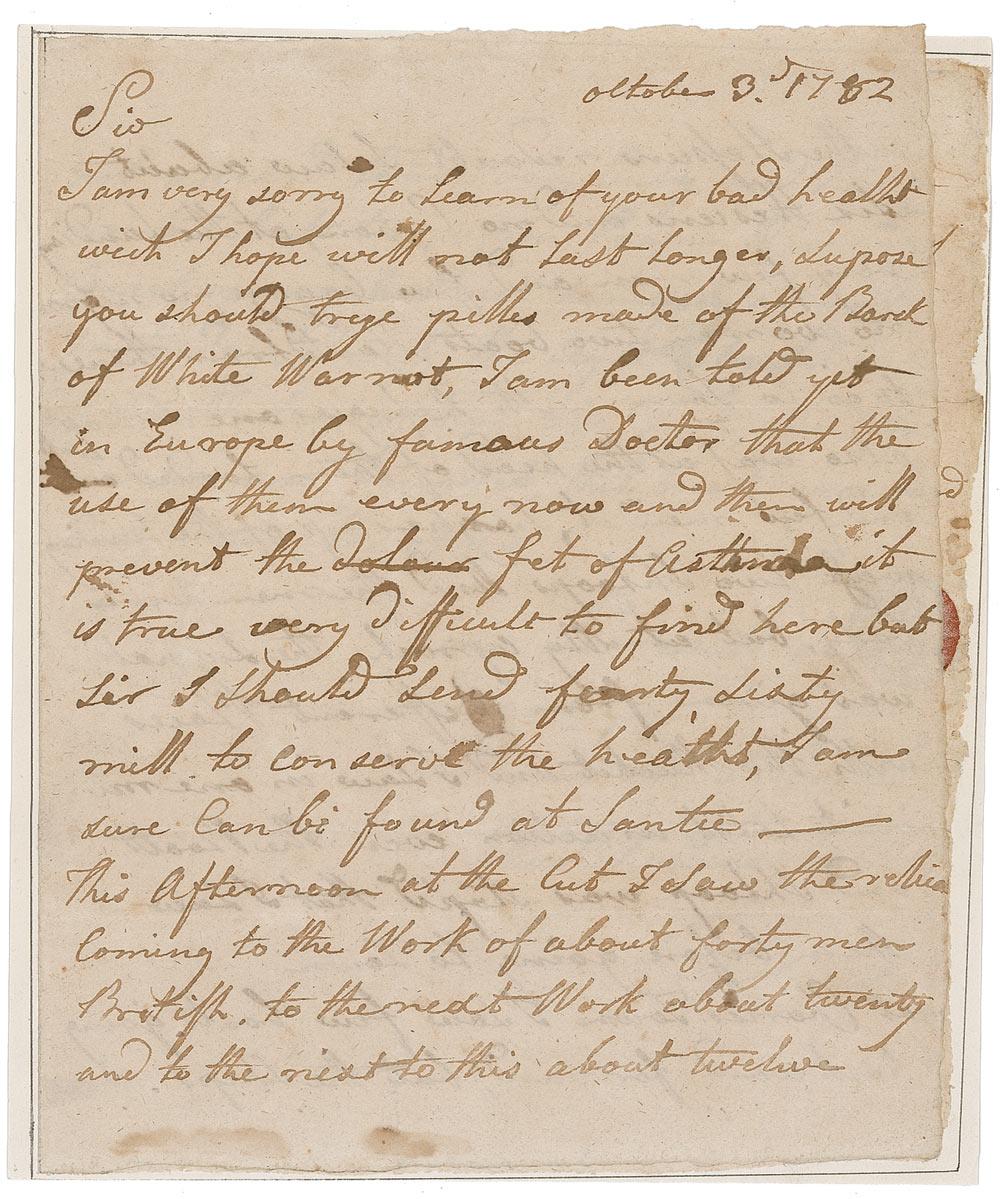 octobe 3.d 1782
Sir
I am very sorry to learn of your bad healht
wich I hope will not last longer, supose
you should trye pilles made of the Barck
of White Warnot, I am been told yet
in Europe by famous Doctor that the
use of them every now and then will
prevent the dolour fet of Asthma it
is true very difficult to find here but
sir I should send fourty, sixty
mill to conserve the healht, I am
sure Can be found at Santee
This Afternoon at the Cut I saw the
Coming to the Work of about forty men
British. to the next Work about twenty
and to the next to this about twelve